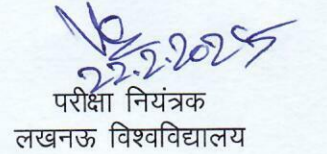 22.2.2025
परीक्षा नियंत्रक
लखनऊ विश्वविद्यालय